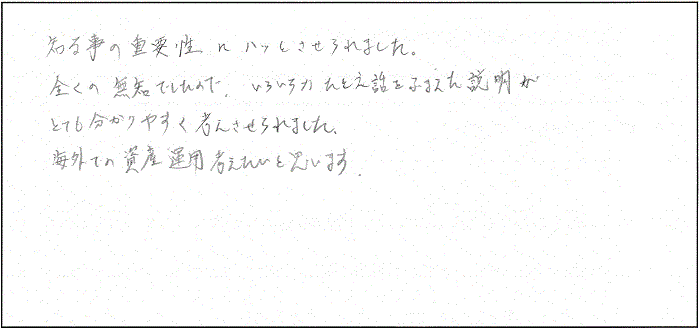 知る事の重要性にハッとさせられました。
全くの無知でしたので、いろいろなたとえ話をふまえた説明が
とても分かりやすく考えさせられました。
海外での資産運用考えたいと思います.